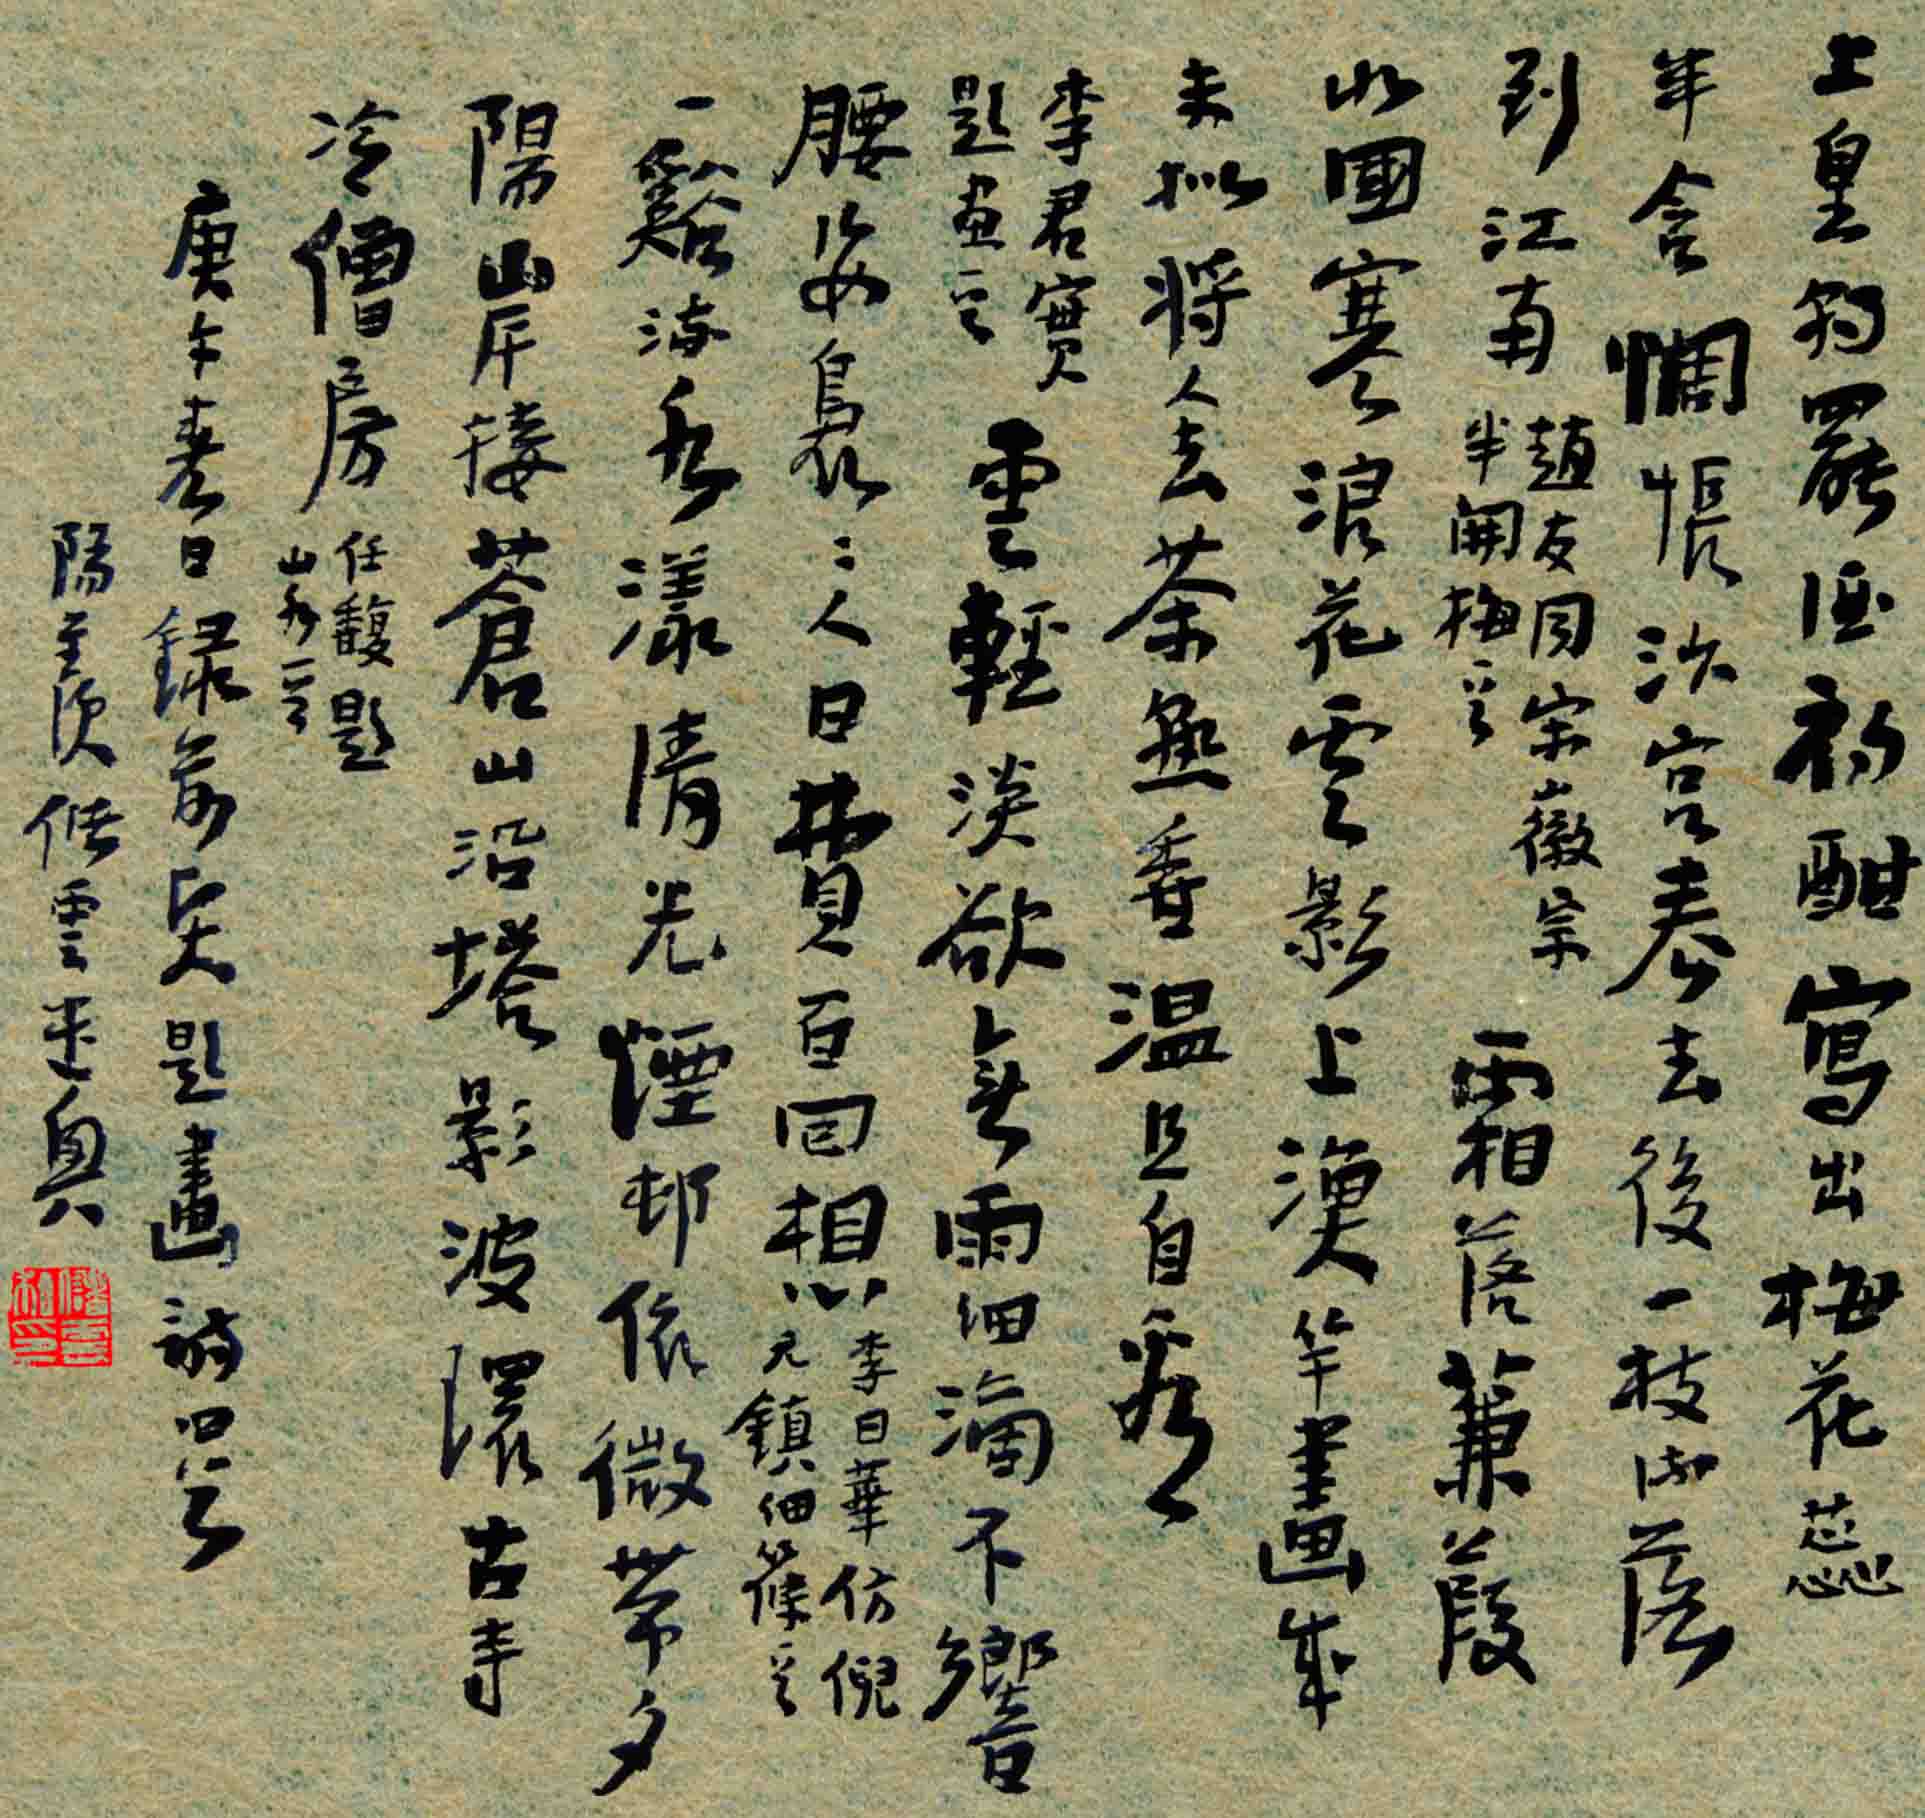 上皇朝罷酒初酣寫出梅花蕊
半含惆悵汴宮春去後一枝流落
到江南
趙友同宋徽宗
半開梅一首
霜落蒹葭
水國寒浪花雲影上漁竿畫成
未擬將人去茶熟香溫且自看
李君實
題畫一首
雲輕淡欲無雨細滴不響
腰姿裊裊人日費百回想
李日華仿倪
元鎮細篠一首
一谿流水漾清光煙邨依微帶夕
陽山岸接蒼山沿塔影波環古寺
冷僧房
任馥題
山水一首
庚午春日錄前賢題畫詩四首
陽羨儲雲